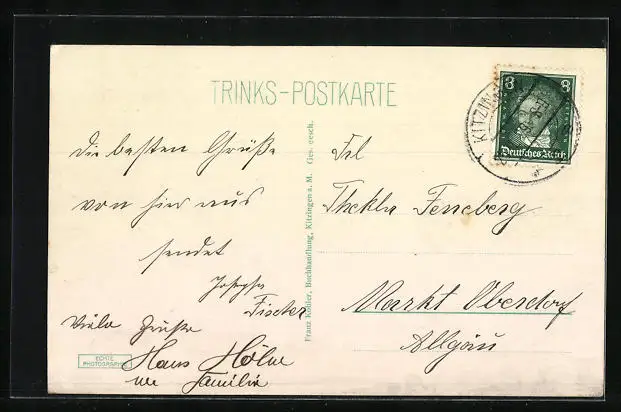 TRINKS-POSTKARTE
8 8
Deutsches Reich
KITZIN
die besten Grüße
von hier aus
sendet
Fischer
Viele Grüße
Hans
Familie
ECHTE
PHOTOGRAPHIE
Franz Köhler, Buchhandlung, Kitzingen a. M. Ges. gesch.
Frl
Thekla Fenneberg
Markt Oberdorf
Allgäu